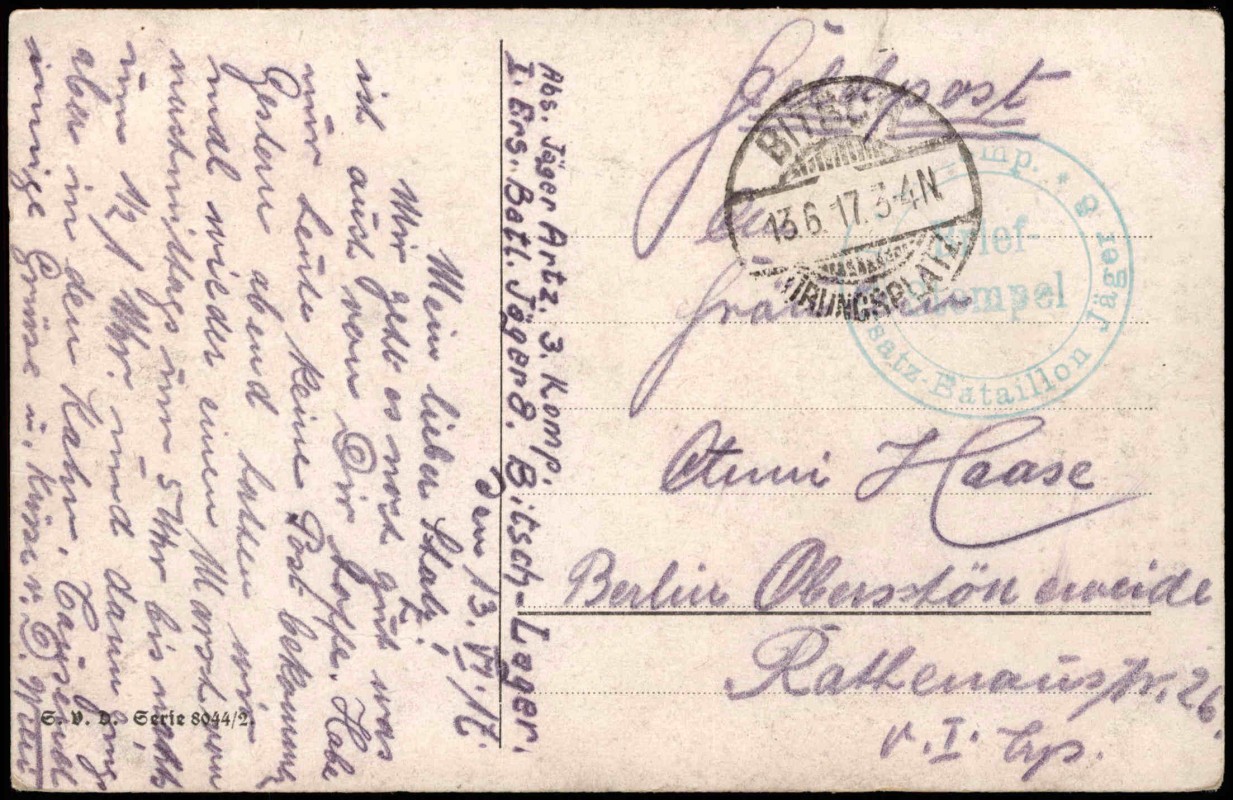 Feldpost
An
Fräulein
Haase
Berlin Oberschön eweide
Rathenaustr. 26
v. I. Trp.
BITSCH
13.6.17.3-4N.
ÜBUNGSPLATZ
Brief-
stempel
Ersatz-Bataillon Jäger 8
Abs. Jäger Artz. 3. Komp.
I. Ers. Batl. Jäger 8. Bitsch-Lager.
Den 13. VI. 17.
Mein lieber Schatz!
Mir geht es noch gut was
ich auch von Dir hoffe. Habe
nur heute keine Post bekommen
Gestern abend hatten wir
mal wieder einen Marsch von
nachmittags um 5 Uhr bis nachts
um 1/2 1 Uhr. und dann gings
aber in den Kahn. Tausend
innige Grüsse u. Küsse v. D.
S. V. D. Serie 8044/2.